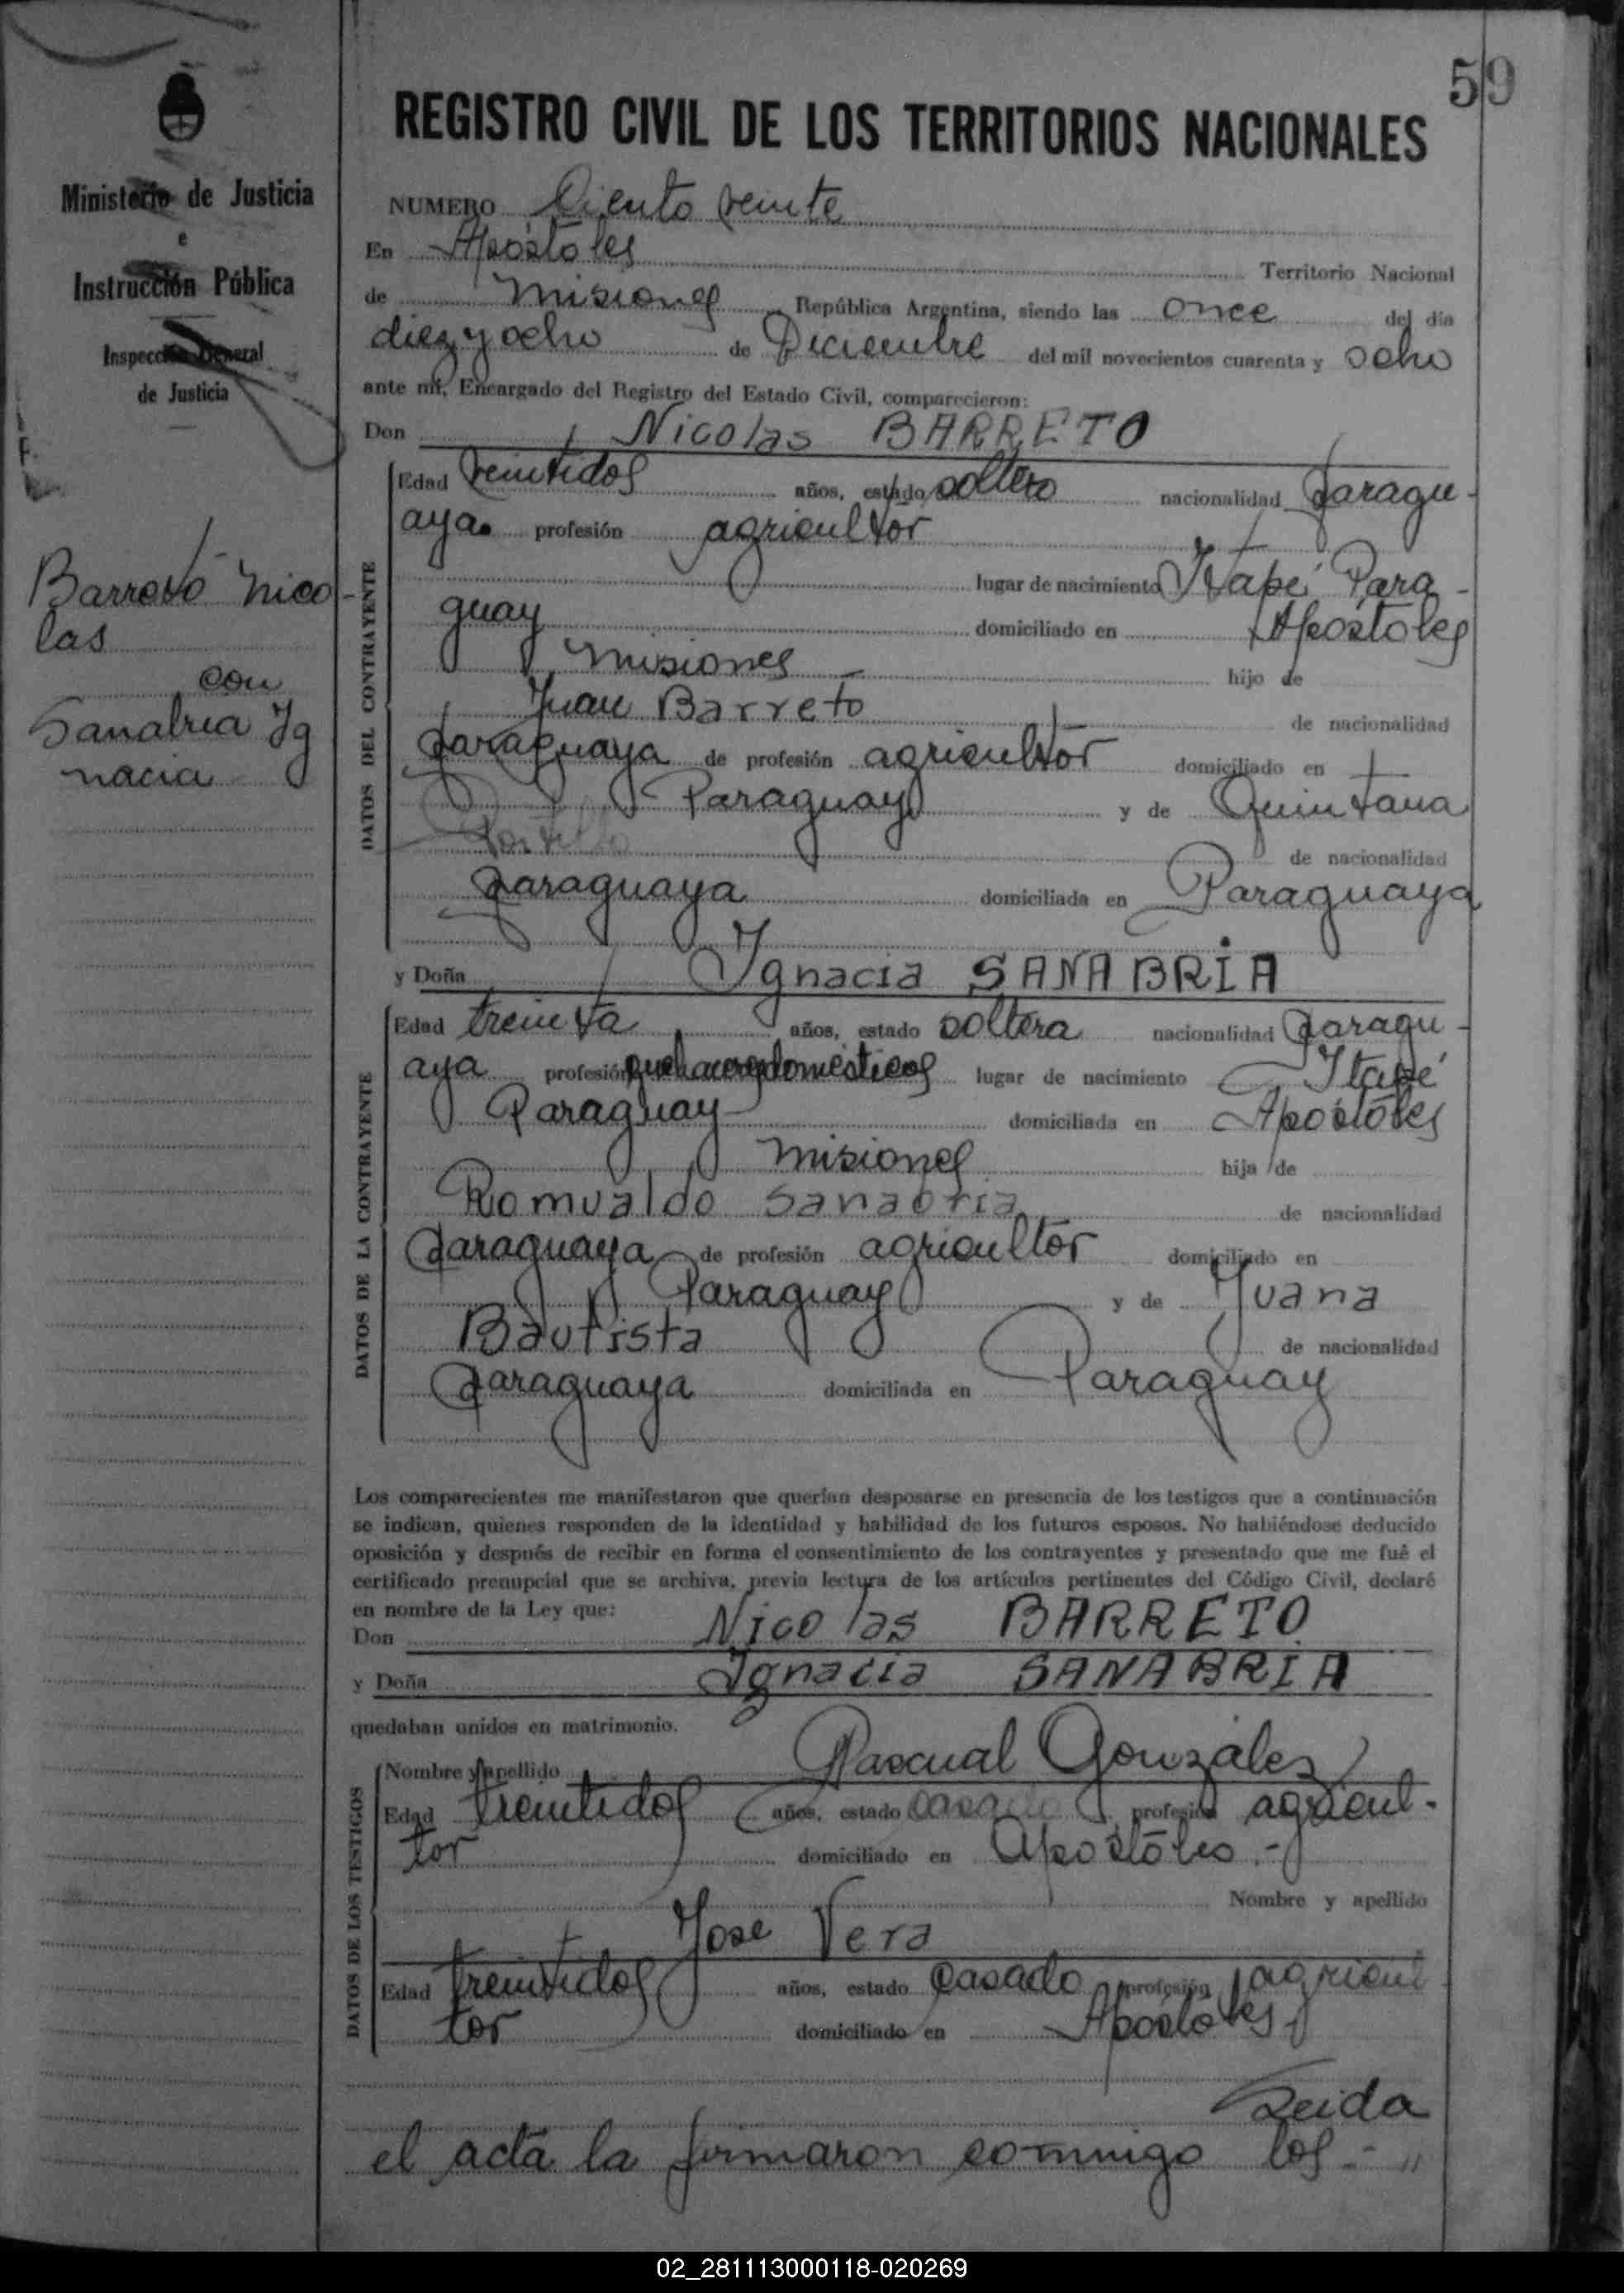 59
REGISTRO CIVIL DE LOS TERRITORIOS NACIONALES
Ministerio de Justicia
e
Instrucción Pública
Inspección General
de Justicia
Barreto Nico-
las
con
Sanabria Ig
nacia
NUMERO Ciento veinte
En Apóstoles Territorio Nacional
de Misiones República Argentina, siendo las once del día
diez y ocho de Diciembre del mil novecientos cuarenta y ocho
ante mí, Encargado del Registro del Estado Civil, comparecieron:
Don Nicolas BARRETO
DATOS DEL CONTRAYENTE
Edad veintidos años, estado soltero nacionalidad paragu-
aya profesión agricultor
lugar de nacimiento Itapé Para-
guay domiciliado en Apóstoles
Misiones hijo de
Juan Barreto de nacionalidad
paraguaya de profesión agricultor domiciliado en
Paraguay y de Quintana
Portillo de nacionalidad
paraguaya domiciliada en Paraguaya
y Doña Ignacia SANABRIA
DATOS DE LA CONTRAYENTE
Edad treinta años, estado soltera nacionalidad paragu-
aya profesión quehaceres domésticos lugar de nacimiento Itapé
Paraguay domiciliada en Apóstoles
Misiones hija de
Romualdo Sanabria de nacionalidad
paraguaya de profesión agricultor domiciliado en
Paraguay y de Juana
Bautista de nacionalidad
paraguaya domiciliada en Paraguay
Los comparecientes me manifestaron que querían desposarse en presencia de los testigos que a continuación
se indican, quienes responden de la identidad y habilidad de los futuros esposos. No habiéndose deducido
oposición y después de recibir en forma el consentimiento de los contrayentes y presentado que me fué el
certificado prenupcial que se archiva, previa lectura de los artículos pertinentes del Código Civil, declaré
en nombre de la Ley que:
Don Nicolas BARRETO
y Doña Ignacia SANABRIA
quedaban unidos en matrimonio.
DATOS DE LOS TESTIGOS
Nombre y apellido Pascual González
Edad treintidos años, estado casado profesión agricul-
tor domiciliado en Apóstoles.-
Nombre y apellido
Jose Vera
Edad treintidos años, estado casado profesión agricul
tor domiciliado en Apóstoles.
Leida
el acta la firmaron conmigo los - "
02_281113000118-020269